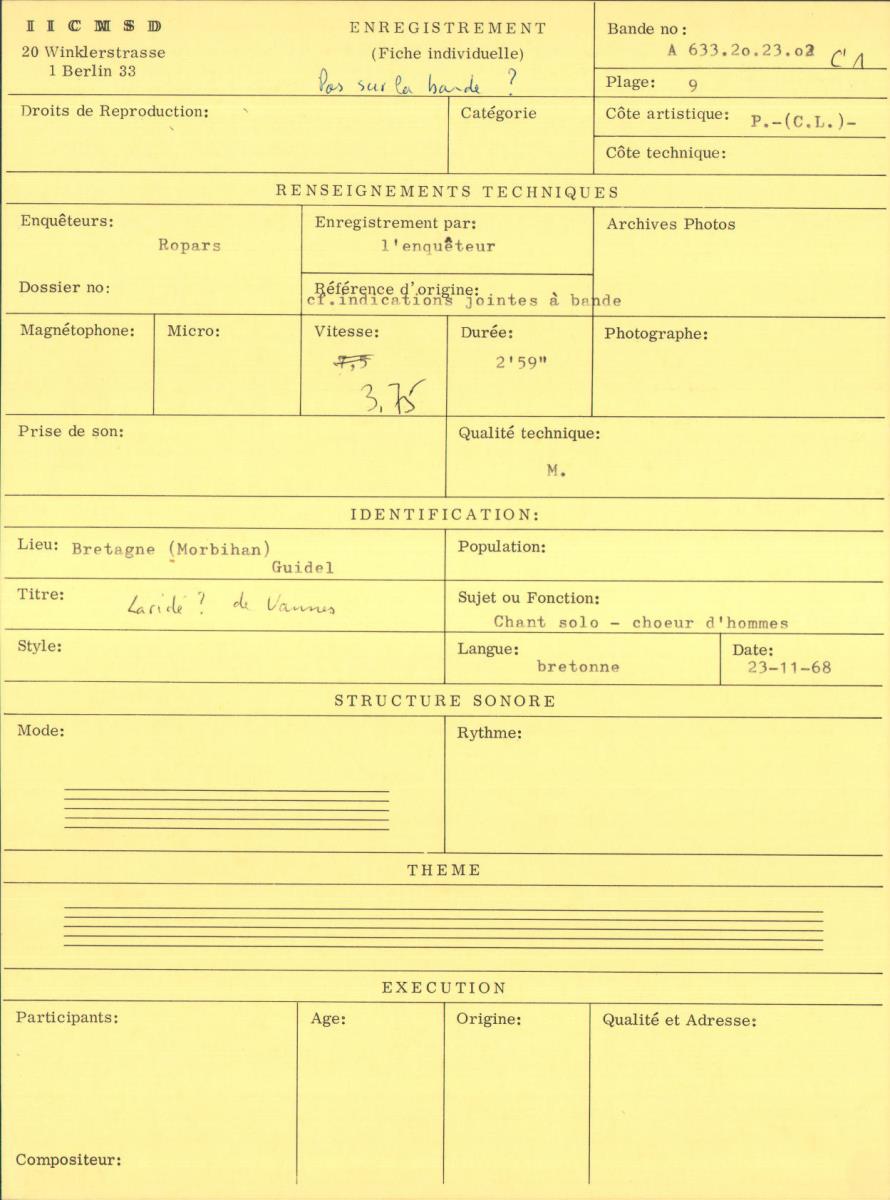 I I C M S D
20 Winklerstrasse
1 Berlin 33
ENREGISTREMENT
(Fiche individuelle)
Pas sur la bande ?
Bande no :
A 633.2o.23.o2 C'1
Plage: 9
Droits de Reproduction:
Catégorie
Côte artistique: P.-(C.L.)-
Côte technique:
RENSEIGNEMENTS TECHNIQUES
Enquêteurs:
Ropars
Dossier no:
Enregistrement par:
l'enquêteur
Référence d'origine:
cf.indications jointes à bande
Archives Photos
Magnétophone:
Micro:
Vitesse:
7,5
3,75
Durée:
2'59"
Photographe:
Prise de son:
Qualité technique:
M.
IDENTIFICATION:
Lieu: Bretagne (Morbihan)
Guidel
Population:
Titre: Laridé ? de Vannes
Sujet ou Fonction:
Chant solo - choeur d'hommes
Style:
Langue:
bretonne
Date:
23-11-68
STRUCTURE SONORE
Mode:
Rythme:
THEME
EXECUTION
Participants:
Age:
Origine:
Qualité et Adresse:
Compositeur: